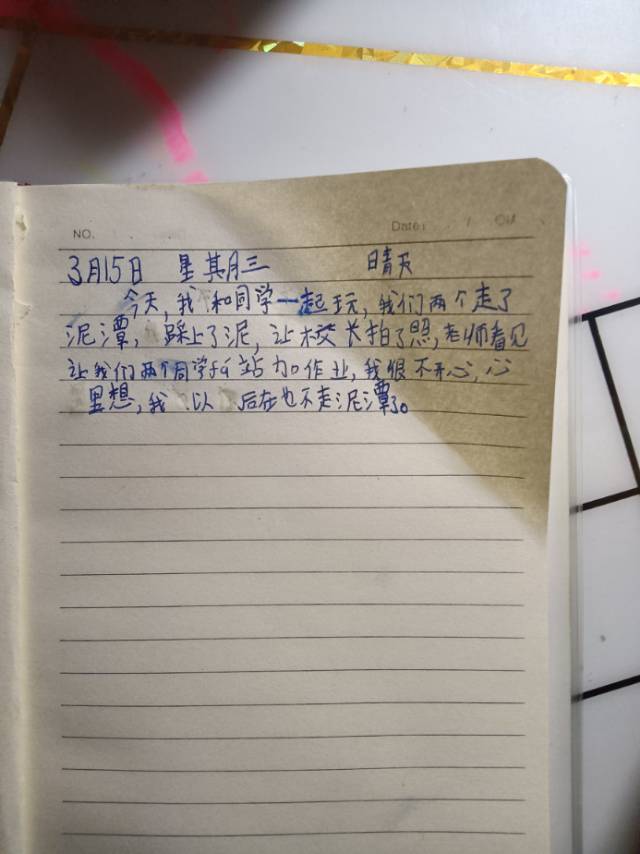 NO.
Date:
3月15日 星其月三 晴天
今天,我和同学一起玩,我们两个走了
泥潭,踩上了泥,让校长拍了照,老师看见
让我们两个同学站加作业,我很不开心,心
里想,我以后在也不走泥潭了。